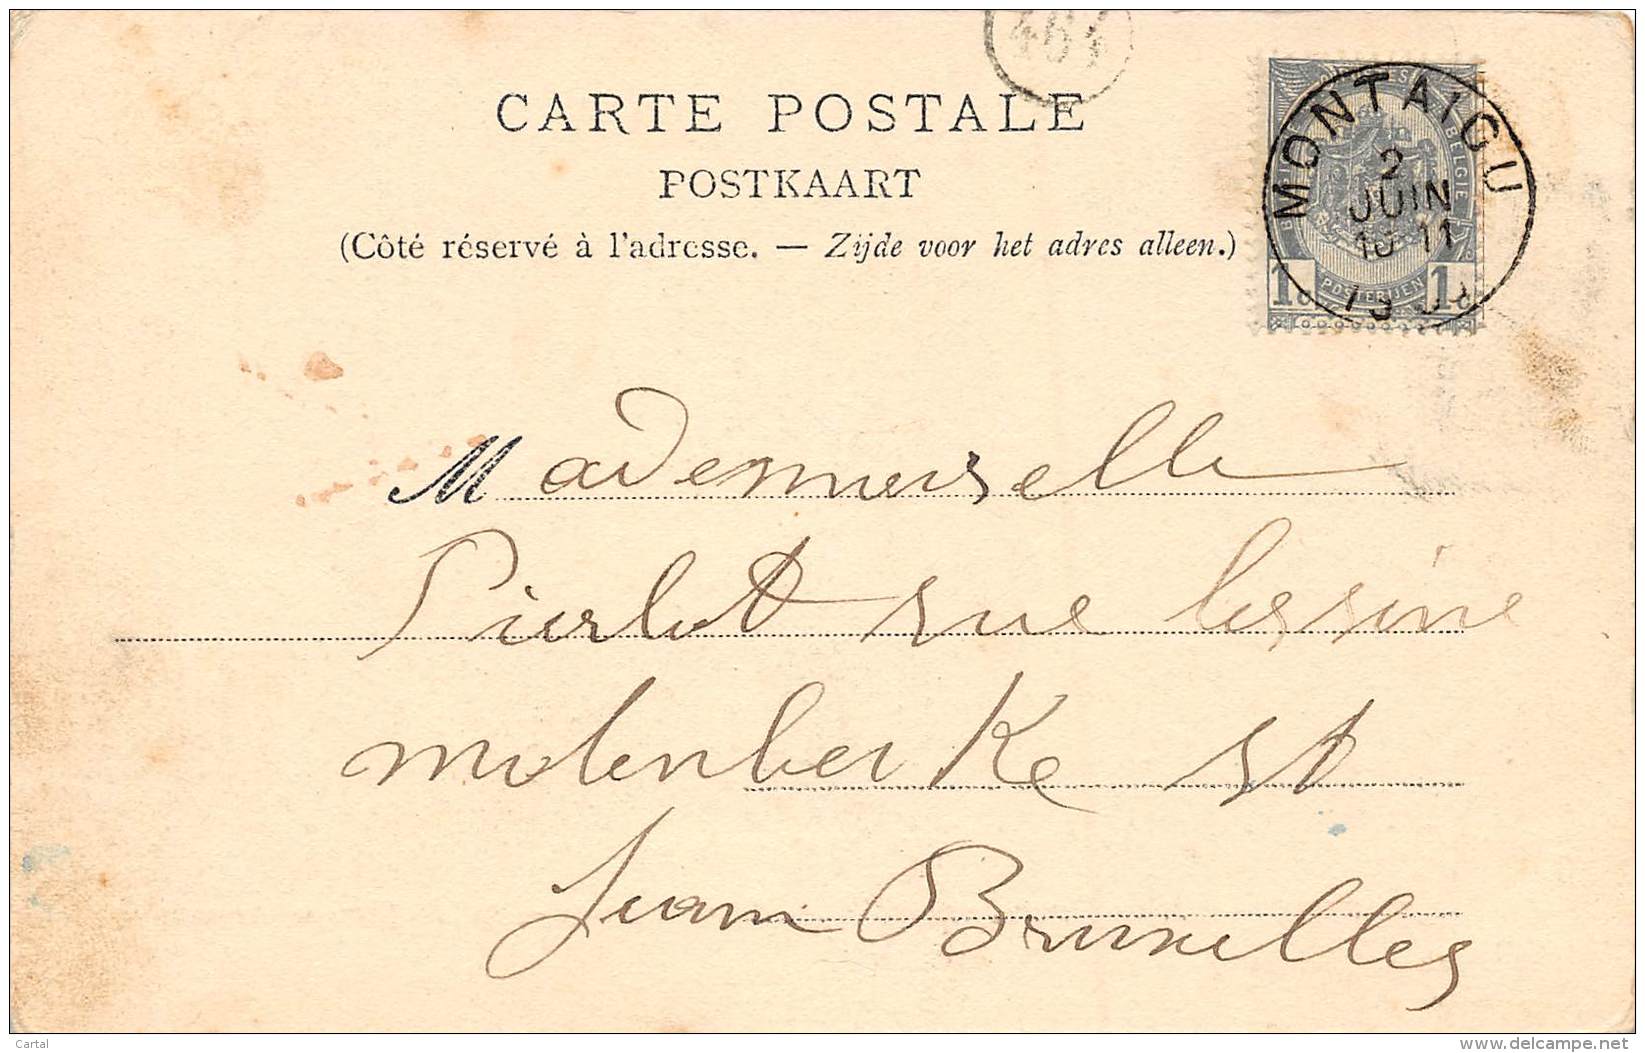 CARTE POSTALE
POSTKAART
(Côté réservé à l'adresse. — Zijde voor het adres alleen.)
MONTAIGU
2
JUIN
10-11
BELGIE
POSTERIJEN
1c 1c
Mademoiselle
Pierlot rue lessine
molenbecke st
Jean Bruxelles
Cartal
www.delcampe.net